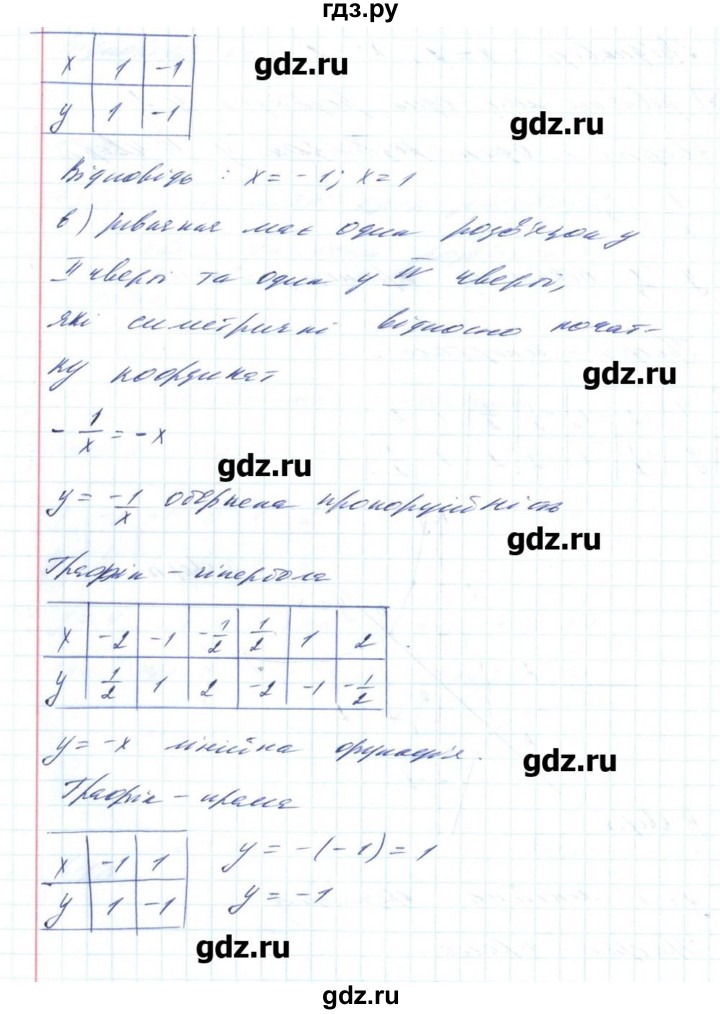 гдз.ру
x 1 -1
gdz.ru
y 1 -1
gdz.ru
Відповідь : x = -1; x = 1
в) рівняння має один розв'язок у
II чверті та один у IV чверті,
які симетричні відносно почат-
ку координат
gdz.ru
- 1/x = -x
gdz.ru
y = -1/x обернена пропорційність
gdz.ru
Графік - гіпербола
x -2 -1 -1/2 1/2 1 2
y 1/2 1 2 -2 -1 -1/2
y = -x лінійна функція.
gdz.ru
Графік - пряма
x -1 1 y = -(-1) = 1
y 1 -1 y = -1
gdz.ru
gdz.ru